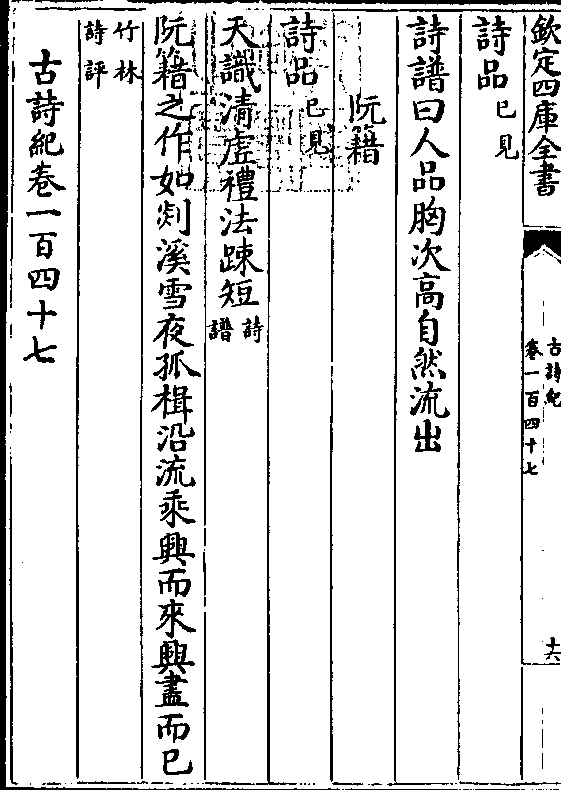 欽定四庫全書
古詩紀
卷一百四十七
十六
詩品已見
詩譜曰人品胸次高自然流出
阮籍
詩品已見
天識清虛禮法踈短詩譜
阮籍之作如剡溪雪夜孤楫沿流乘興而來興盡而已
竹林詩評
古詩紀卷一百四十七